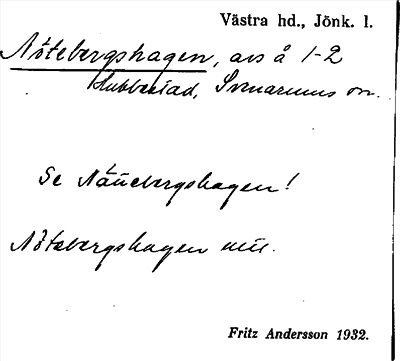 Västra hd., Jönk. l.
Nötebergshagen, avs å 1-2
Klubbestad, Svenarums sn.
Se Nätebergshagen!
Nötebergshagen
Fritz Andersson 1932.